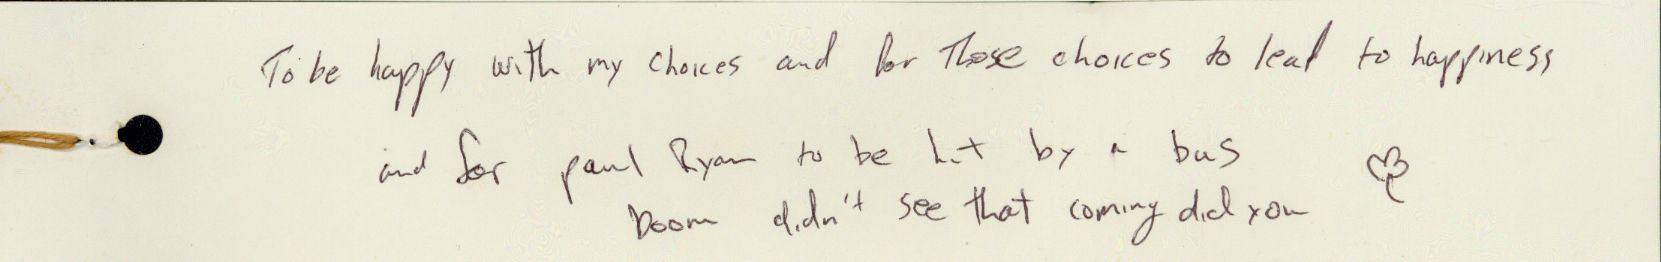 To be happy with my choices and for those choices to lead to happiness
and for paul Ryan to be hit by a bus
boom didn't see that coming did you